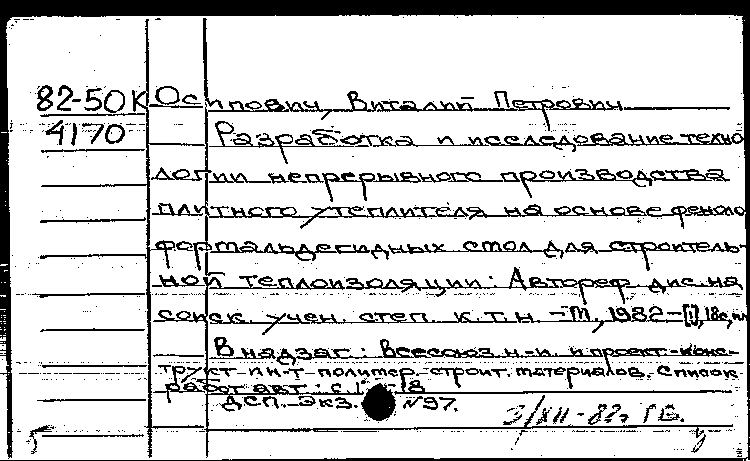 82-50К Осипович, Виталий Петрович
4170 Разработка и исследование техно
логии непрерывного производства
плитного утеплителя на основе феноло
формальдегидных смол для строитель-
ной теплоизоляции: Автореф. дис. на
соиск. учен. степ. к.т.н. -М., 1982 -[1], 18с, ил
В надзаг: Всесоюз. н.-и. и проект.-конс-
трукт. ин-т полимер. строит. материалов. Список
работ авт.: с. 17-18
ДСП. Экз. №97.
3/XII-82г. Г.В.